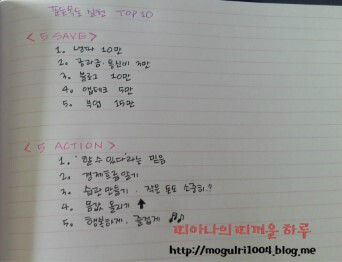 꿈돈목표 실천 TOP 10
< 5 SAVE >
1. 남편 10만
2. 공과금. 통신비 3만
3. 블로그 20만
4. 앱테크 5만
5. 부업 15만
< 5 ACTION >
1. '할 수 있다'라는 믿음
2. 결제 미루기
3. 습관 만들기. 작은 돈도 소중히!!
4. 몸값 올리기 ↑
5. 행복하게. 즐겁게 ♪♫
띠아나의 띠꺼운 하루
http://mogulri1004.blog.me